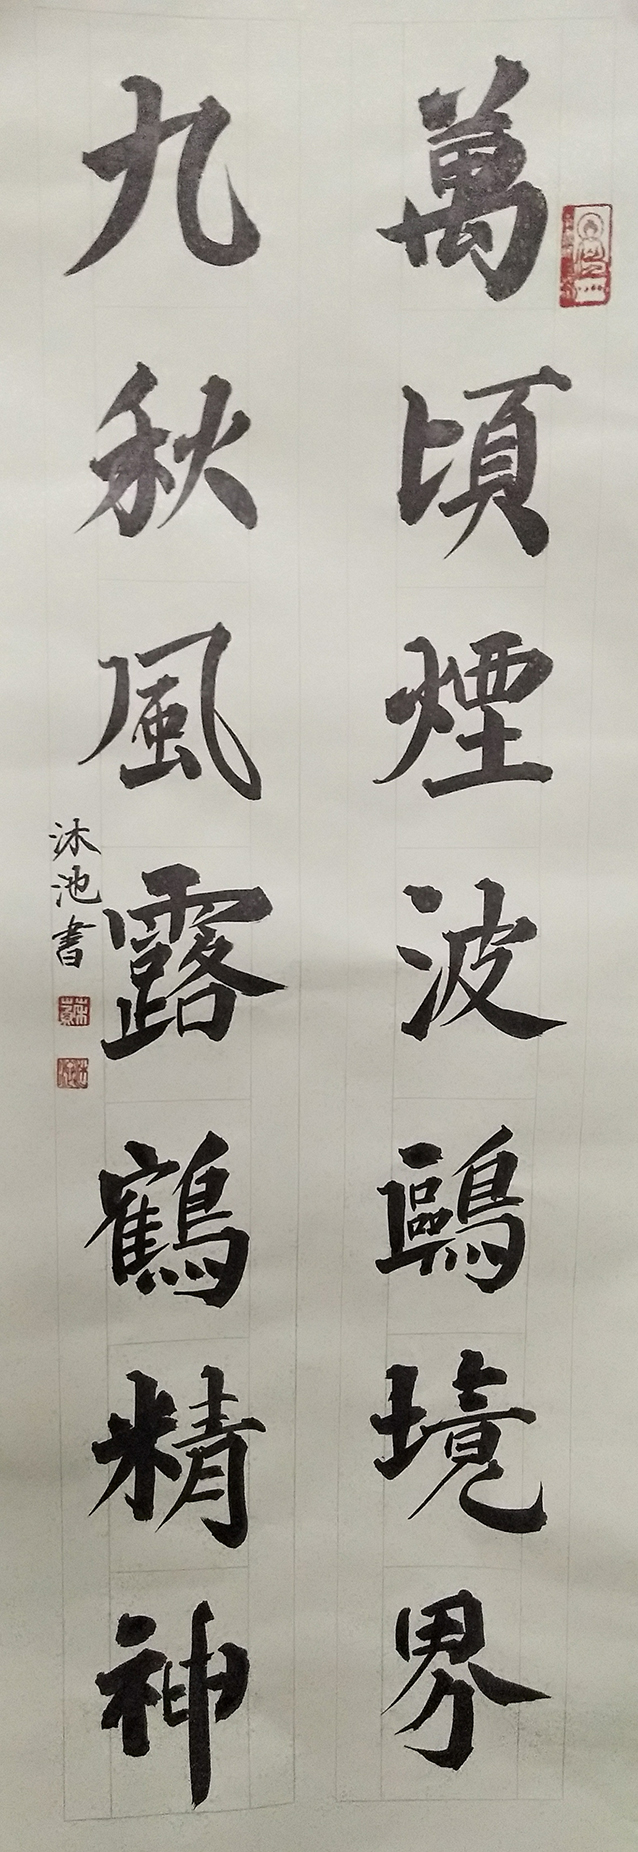 萬頃煙波鷗境界
九秋風露鶴精神
沐池書